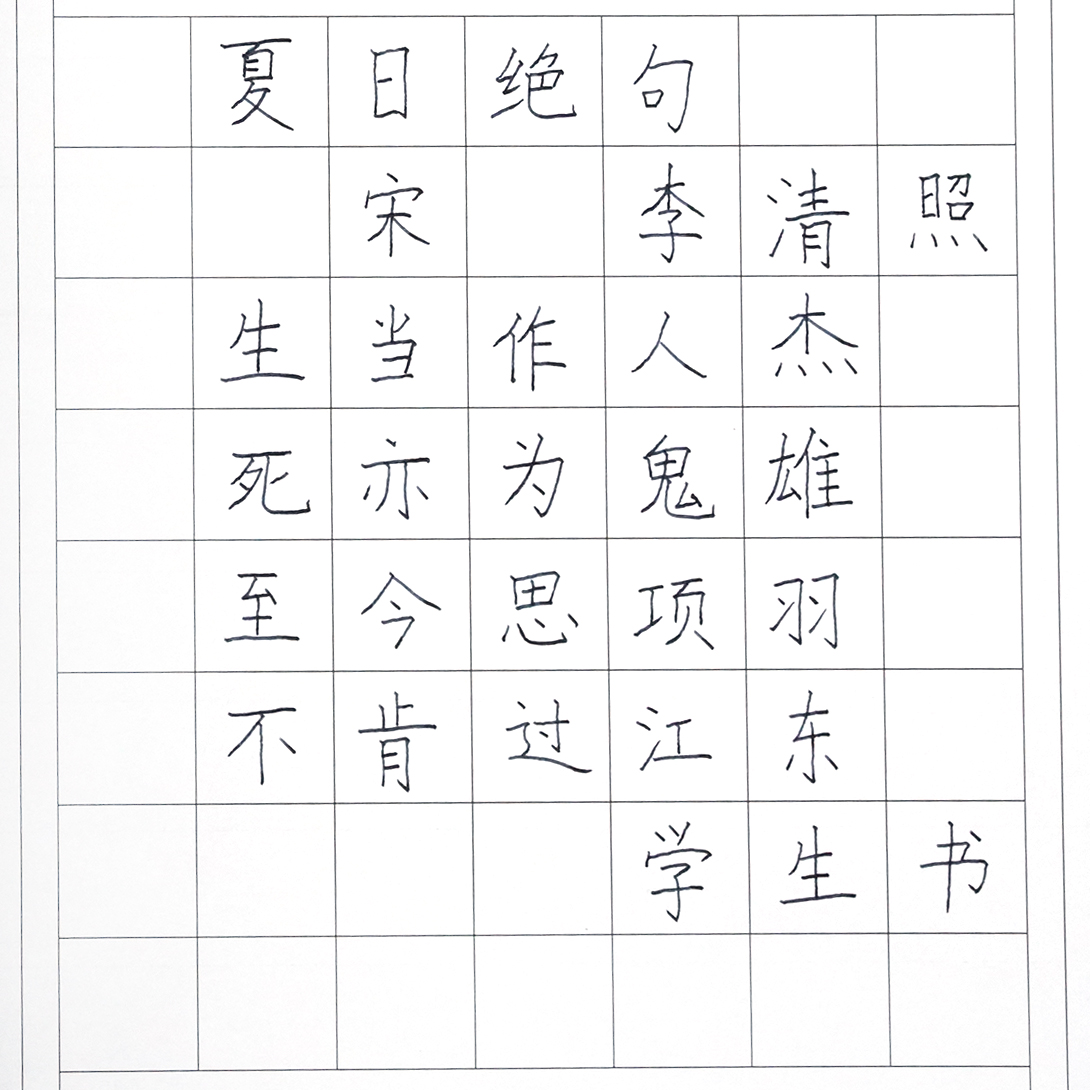 夏日绝句
宋 李清照
生当作人杰
死亦为鬼雄
至今思项羽
不肯过江东
学生书